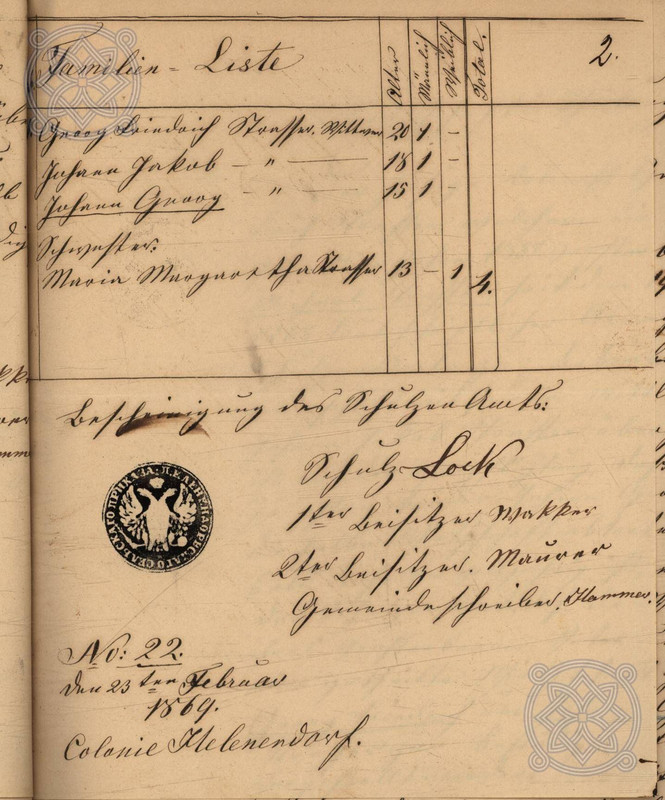 Familien = Liste
Alter
Männlich
Weiblich
Total.
2.
Georg Friedrich Strasser. Wittwer 20 1 –
Johann Jakob – " – 18 1 –
Johann Georg – " – 15 1 –
Schwester:
Maria Margaretha Strasser 13 – 1 4.
Bescheinigung des Schulzen Amts:
Schulz Lock
1ter Beisitzer Wakker
2ter Beisitzer. Maurer
Gemeindeschreiber. Hammer.
No: 22.
den 23ten Februar
1869.
Colonie Helenendorf.